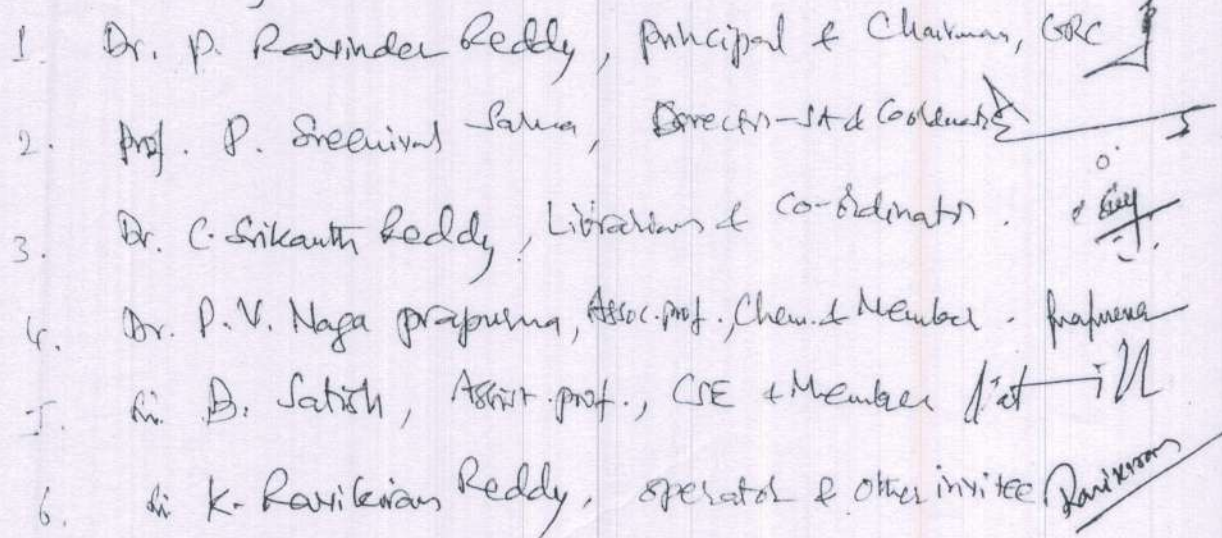 1. Dr. P. Ravinder Reddy, Principal & Chairman, GRC
2. Prof. P. Sreenivas Sarma, Director-SA & Coordinator
3. Dr. C. Srikanth Reddy, Librarian & Co-ordinator.
4. Dr. P. V. Naga prapurna, Assoc. prof., Chem. & Member - Prapurna
5. Sri B. Satish, Assist. prof., CSE & Member
6. Sri K. Ravikiran Reddy, operator & other invitee Ravikiran